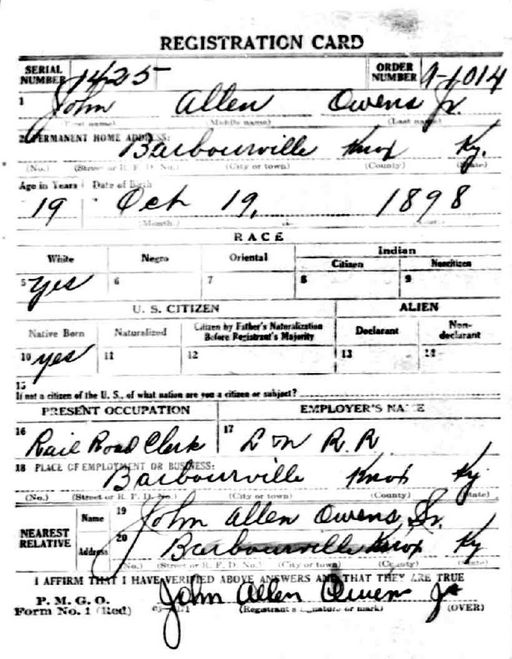 REGISTRATION CARD
SERIAL NUMBER 1425 ORDER NUMBER A-1014
1 John Allen Owens Jr.
(First name) (Middle name) (Last name)
2 PERMANENT HOME ADDRESS: Barbourville Knox Ky.
(No.) (Street or R. F. D. No.) (City or town) (County) (State)
Age in Years Date of Birth
19 Oct 19, 1898
(Month.)
RACE
White Negro Oriental Indian
Citizen Noncitizen
5 yes 6 7 8 9
U. S. CITIZEN ALIEN
Native Born Naturalized Citizen by Father's Naturalization Before Registrant's Majority Declarant Non-declarant
10 yes 11 12 13 14
15
If not a citizen of the U. S., of what nation are you a citizen or subject?
PRESENT OCCUPATION EMPLOYER'S NAME
16 Rail Road Clerk 17 L & N R. R.
18 PLACE OF EMPLOYMENT OR BUSINESS:
Barbourville Knox Ky
(No.) (Street or R. F. D. No.) (City or town) (County) (State)
NEAREST RELATIVE Name 19 John Allen Owens, Sr.
Address 20 Barbourville Knox Ky
(No.) (Street or R. F. D. No.) (City or town) (County) (State)
I AFFIRM THAT I HAVE VERIFIED ABOVE ANSWERS AND THAT THEY ARE TRUE
P. M. G. O.
Form No. 1 (Red) John Allen Owens Jr
(Registrant's signature or mark) (OVER)